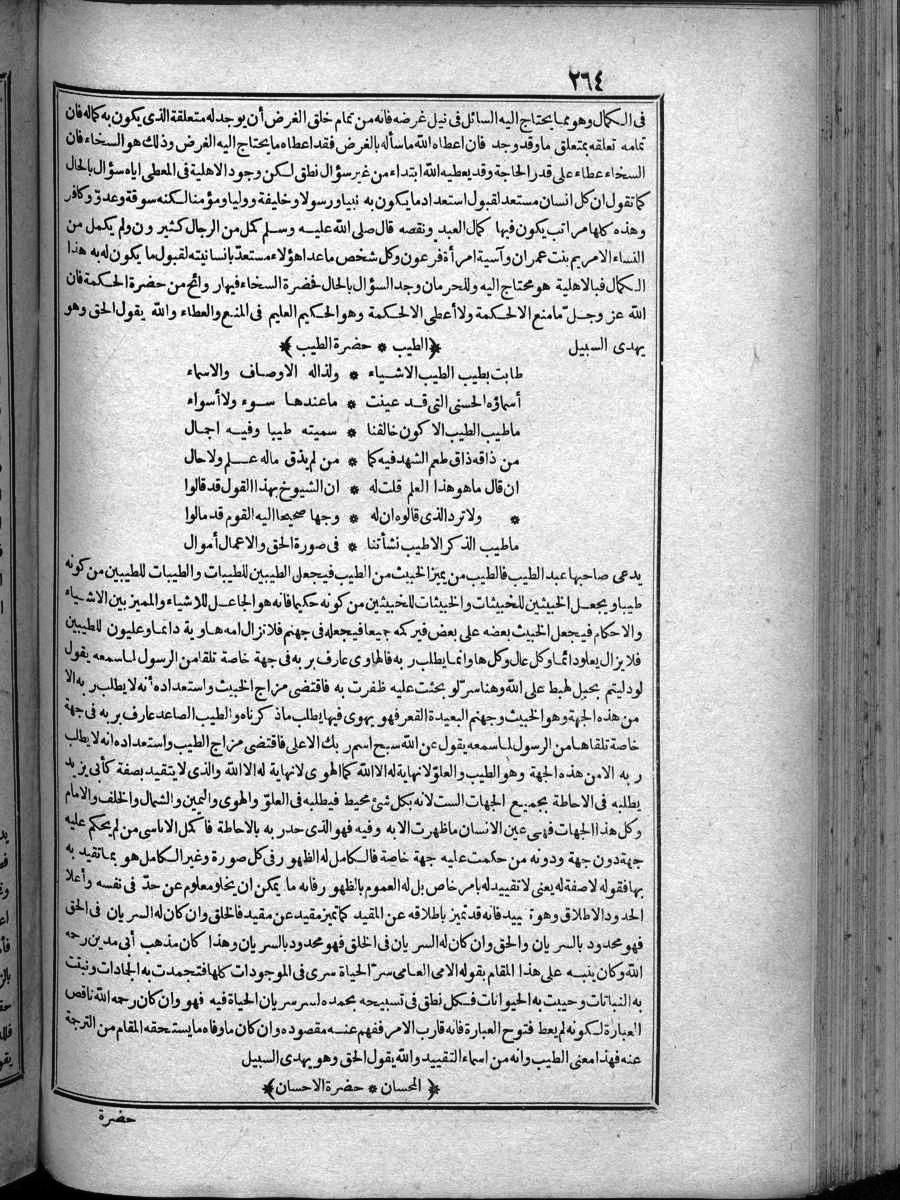 ٢٦٤
فى الكمال وهو مما يحتاج اليه السائل فى نيل غرضه فانه من تمام خلق الغرض أن يوجد له متعلقة الذى يكون به كماله فان
تمامه تعلقه بمتعلق ما وقد وجد فان اعطاه الله ما سأله بالغرض فقد اعطاه ما يحتاج اليه الغرض وذلك هو السخاء فان
السخاء عطاء على قدر الحاجة وقد يعطيه الله ابتداء من غير سؤال نطق لكن وجود الاهلية فى المعطى اياه سؤال بالحال
كما تقول ان كل انسان مستعد لقبول استعداد ما يكون به نبيا ورسولا وخليفة ووليا ومؤمنا لكنه سوقة وعدوّ وكافر
وهذه كلها مراتب يكون فيها كمال العبد ونقصه قال صلى الله عليه وسلم كمل من الرجال كثيرون ولم يكمل من
النساء الا مريم بنت عمران وآسية امرأة فرعون وكل شخص ما عدا هؤلاء مستعدّ بانسانيته لقبول ما يكون له به هذا
الكمال فبالاهلية هو محتاج اليه وللحرمان وجد السؤال بالحال فحضرة السخاء فيها روائح من حضرة الحكمة فان
الله عز وجلّ ما منع الا لحكمة ولا أعطى الا لحكمة وهو الحكيم العليم فى المنع والعطاء والله يقول الحق وهو
يهدى السبيل ﴿الطيب * حضرة الطيب﴾
طابت بطيب الطيب الاشياء * ولذاله الاوصاف والاسماء
أسماؤه الحسنى التى قد عينت * ما عندها سوء ولا أسواء
ما طيب الطيب الا كون خالقنا * سميته طيبا وفيه اجمال
من ذاقه ذاق طعم الشهد فيه كما * من لم يذق ماله علم ولا حال
ان قال ما هو هذا العلم قلت له * ان الشيوخ بهذا القول قد قالوا
* ولا ترد الذى قالوه ان له * وجها صحيحا اليه القوم قد مالوا
ما طيب الذكر الا طيب نشأتنا * فى صورة الحق والاعمال أموال
يدعى صاحبها عبد الطيب فالطيب من يميز الخبيث من الطيب فيجعل الطيبين للطيبات والطيبات للطيبين من كونه
طيبا ويجعل الخبيثين للخبيثات والخبيثات للخبيثين من كونه حكيما فانه هو الجاعل للاشياء والمميز بين الاشياء
والاحكام فيجعل الخبيث بعضه على بعض فيركمه جميعا فيجعله فى جهنم فلا تزال امه هاوية دائما وعليون للطيبين
فلا يزال يعلو دائما وكل عال وكل هاو انما يطلب ربه فالهاوى عارف بربه فى جهة خاصة تلقاها من الرسول لما سمعه يقول
لو دليتم بحبل لهبط على الله وهنا سرّ لو بحثت عليه ظفرت به فاقتضى مزاج الخبيث واستعداده أنه لا يطلب ربه الا
من هذه الجهة وهو الخبيث وجهنم البعيدة القعر فهو يهوى فيها يطلب ما ذكرناه والطيب الصاعد عارف بربه فى جهة
خاصة تلقاها من الرسول لما سمعه يقول عن الله سبح اسم ربك الاعلى فاقتضى مزاج الطيب واستعداده انه لا يطلب
ربه الا من هذه الجهة وهو الطيب والعلوّ لا نهاية له الا الله كما الهوى لا نهاية له الا الله والذى لا يتقيد بصفة كأبى يزيد
يطلبه فى الاحاطة بجميع الجهات الست لانه بكل شئ محيط فيطلبه فى العلوّ والهوى واليمين والشمال والخلف والامام
وكل هذا الجهات فهى عين الانسان ما ظهرت الا به وفيه فهو الذى حدر به بالاحاطة فأكمل الاناسى من لم يحكم عليه
جهة دون جهة ودونه من حكمت عليه جهة خاصة فالكامل له الظهور فى كل صورة وغير الكامل هو بما تقيد به
بها فقوله لا صفة له يعنى لا تقييد له بامر خاص بل له العموم بالظهور فانه ما يمكن ان يخلو معلوم عن حدّ فى نفسه وأعلا
الحدود الاطلاق وهو تقييد فانه قد تميز باطلاقه عن المقيد كما تميز مقيد عن مقيد فالخلق وان كان له السريان فى الحق
فهو محدود بالسريان والحق وان كان له السريان فى الخلق فهو محدود بالسريان وهذا كان مذهب أبى مدين رحمه
الله وكان ينبه على هذا المقام بقوله الامى العامى سرّ الحياة سرى فى الموجودات كلها فتجمدت به الجمادات ونبتت
به النباتات وحييت به الحيوانات فكل نطق فى تسبيحه بحمده لسر سريان الحياة فيه فهو وان كان رحمه الله ناقص
العبارة لكونه لم يعط فتوح العبارة فانه قارب الامر ففهم عنه مقصوده وان كان ما وفاه ما يستحقه المقام من الترجمة
عنه فهذا معنى الطيب وانه من اسماء التقييد والله يقول الحق وهو يهدى السبيل
﴿ المحسان * حضرة الاحسان﴾
حضرة